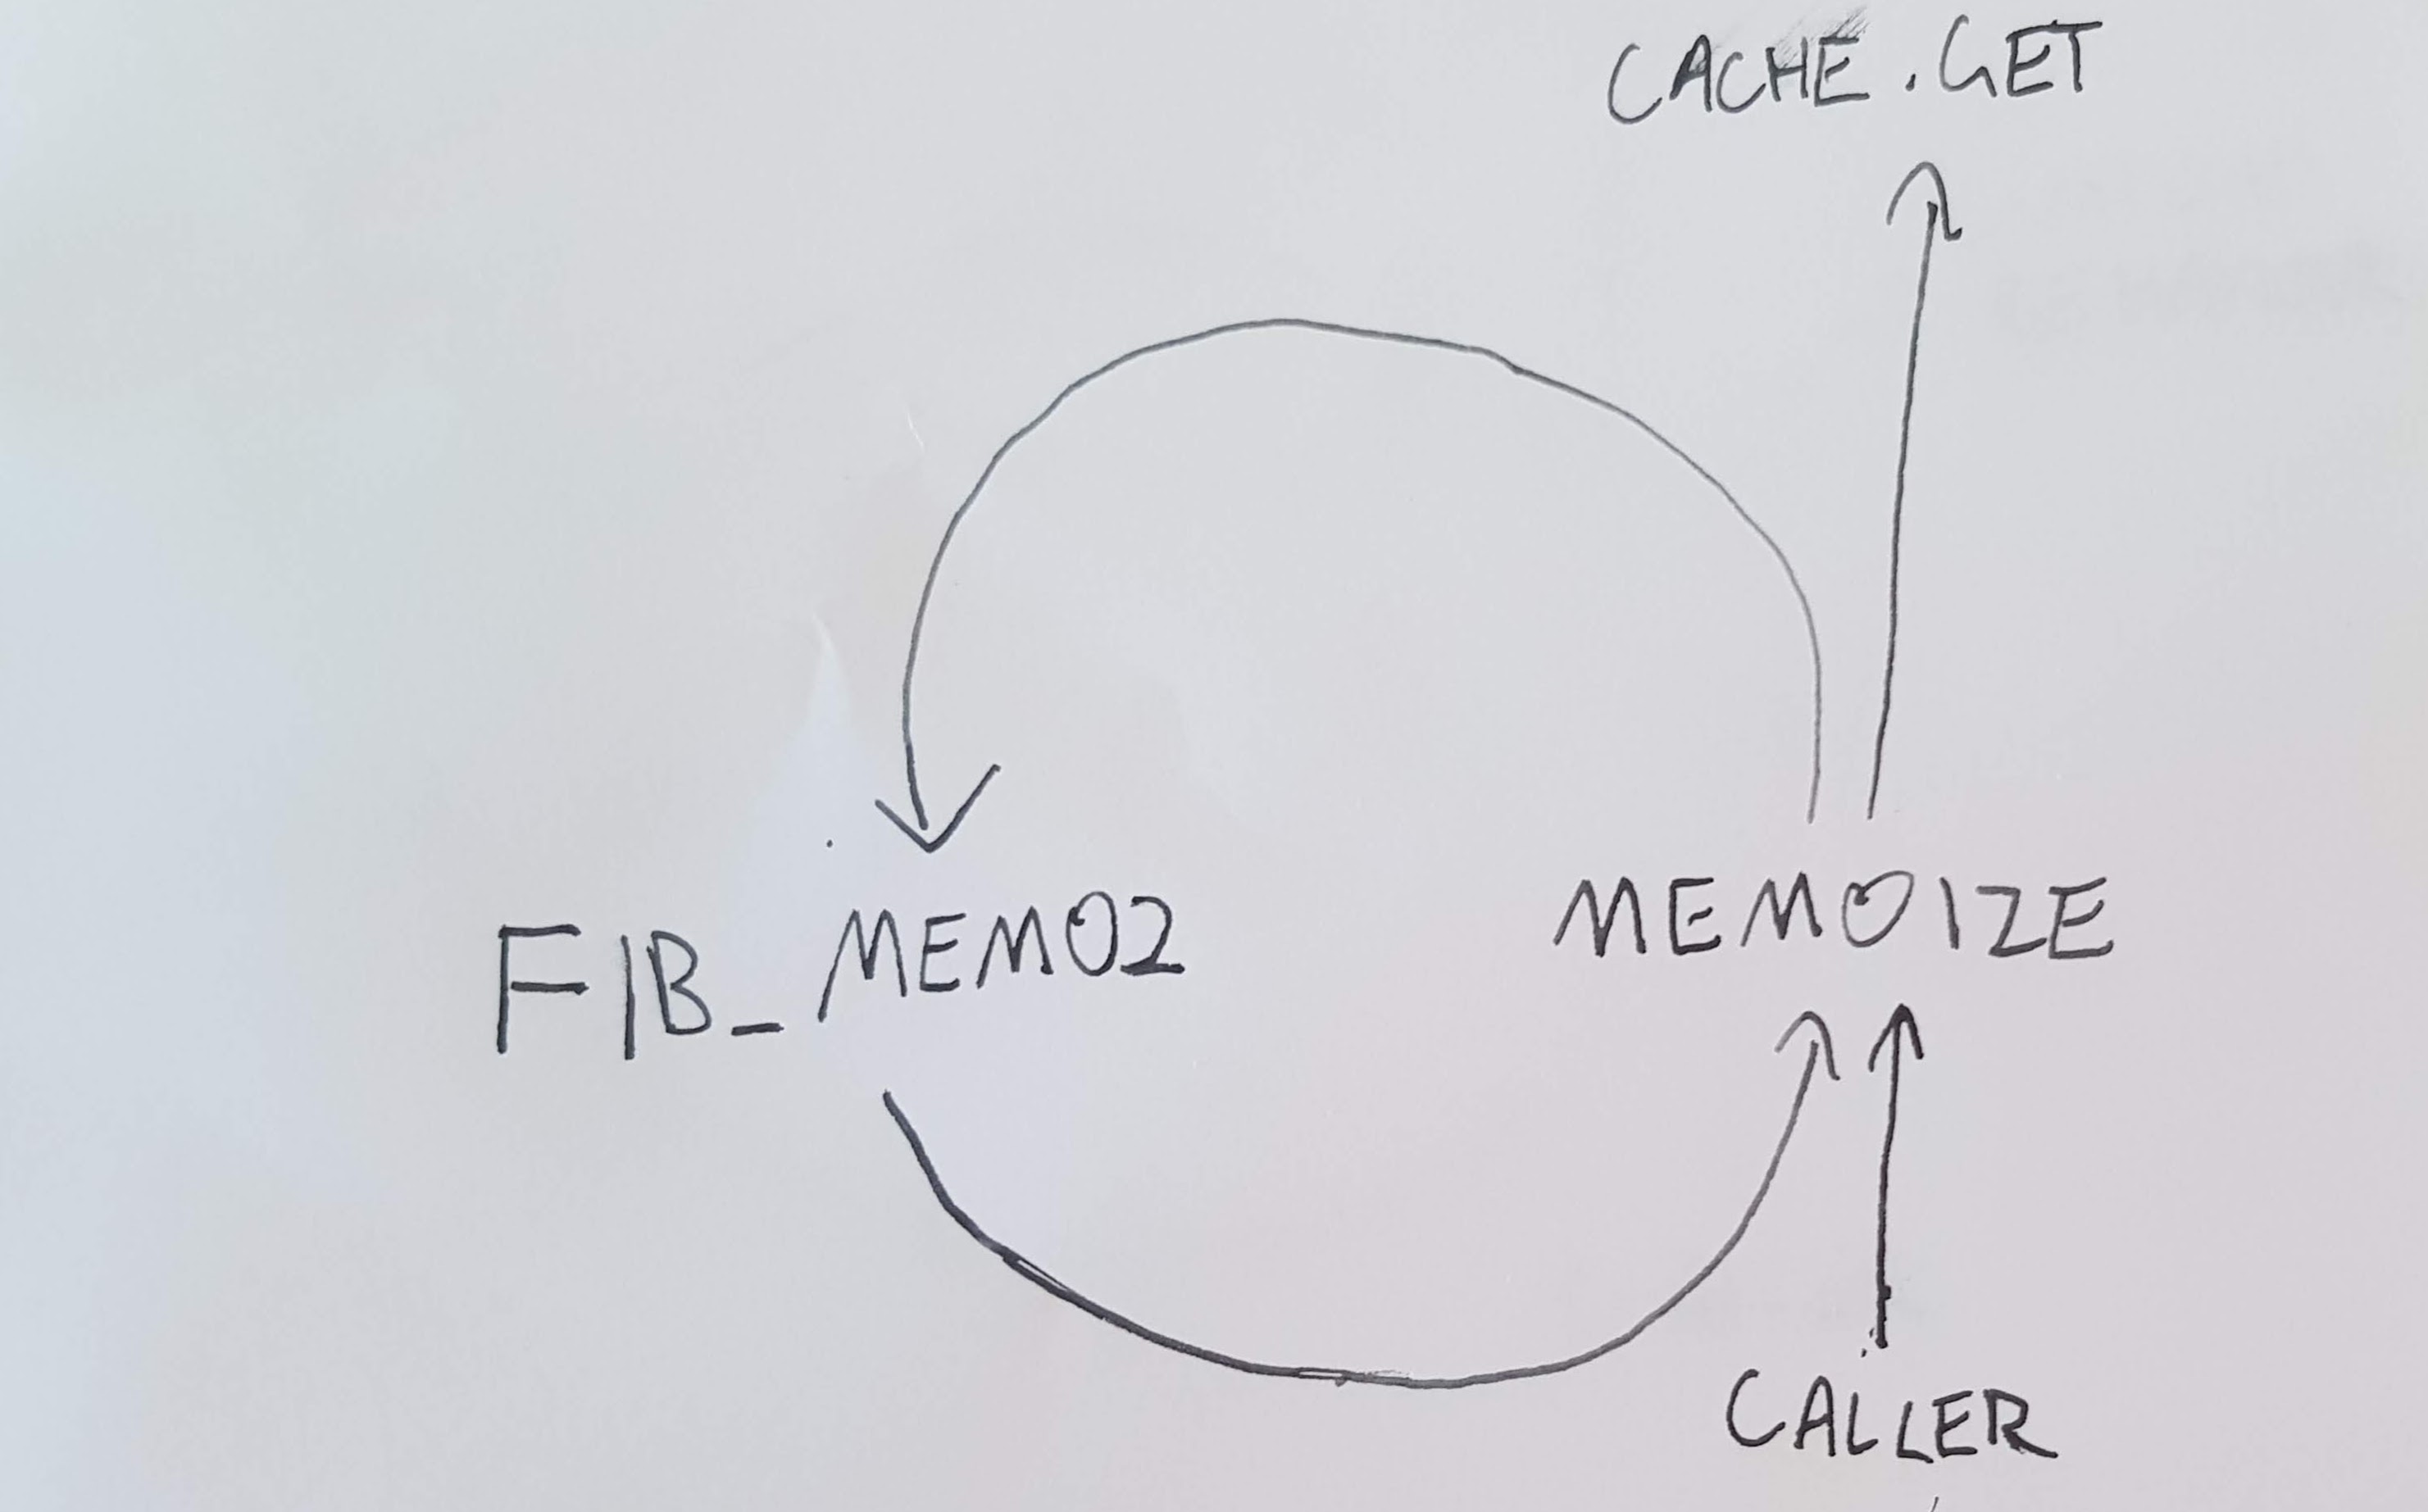 CACHE.GET
FIB_MEMO2
MEMOIZE
CALLER